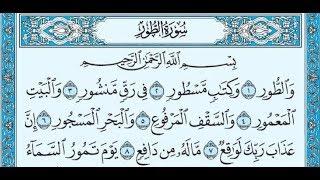 سُورَةُ الطُّورِ
بِسْمِ اللَّهِ الرَّحْمَٰنِ الرَّحِيمِ
وَالطُّورِ ۝١ وَكِتَٰبٍ مَّسْطُورٍ ۝٢ فِى رَقٍّ مَّنشُورٍ ۝٣ وَالْبَيْتِ
الْمَعْمُورِ ۝٤ وَالسَّقْفِ الْمَرْفُوعِ ۝٥ وَالْبَحْرِ الْمَسْجُورِ ۝٦ إِنَّ
عَذَابَ رَبِّكَ لَوَٰقِعٌ ۝٧ مَّا لَهُۥ مِن دَافِعٍ ۝٨ يَوْمَ تَمُورُ السَّمَآءُ